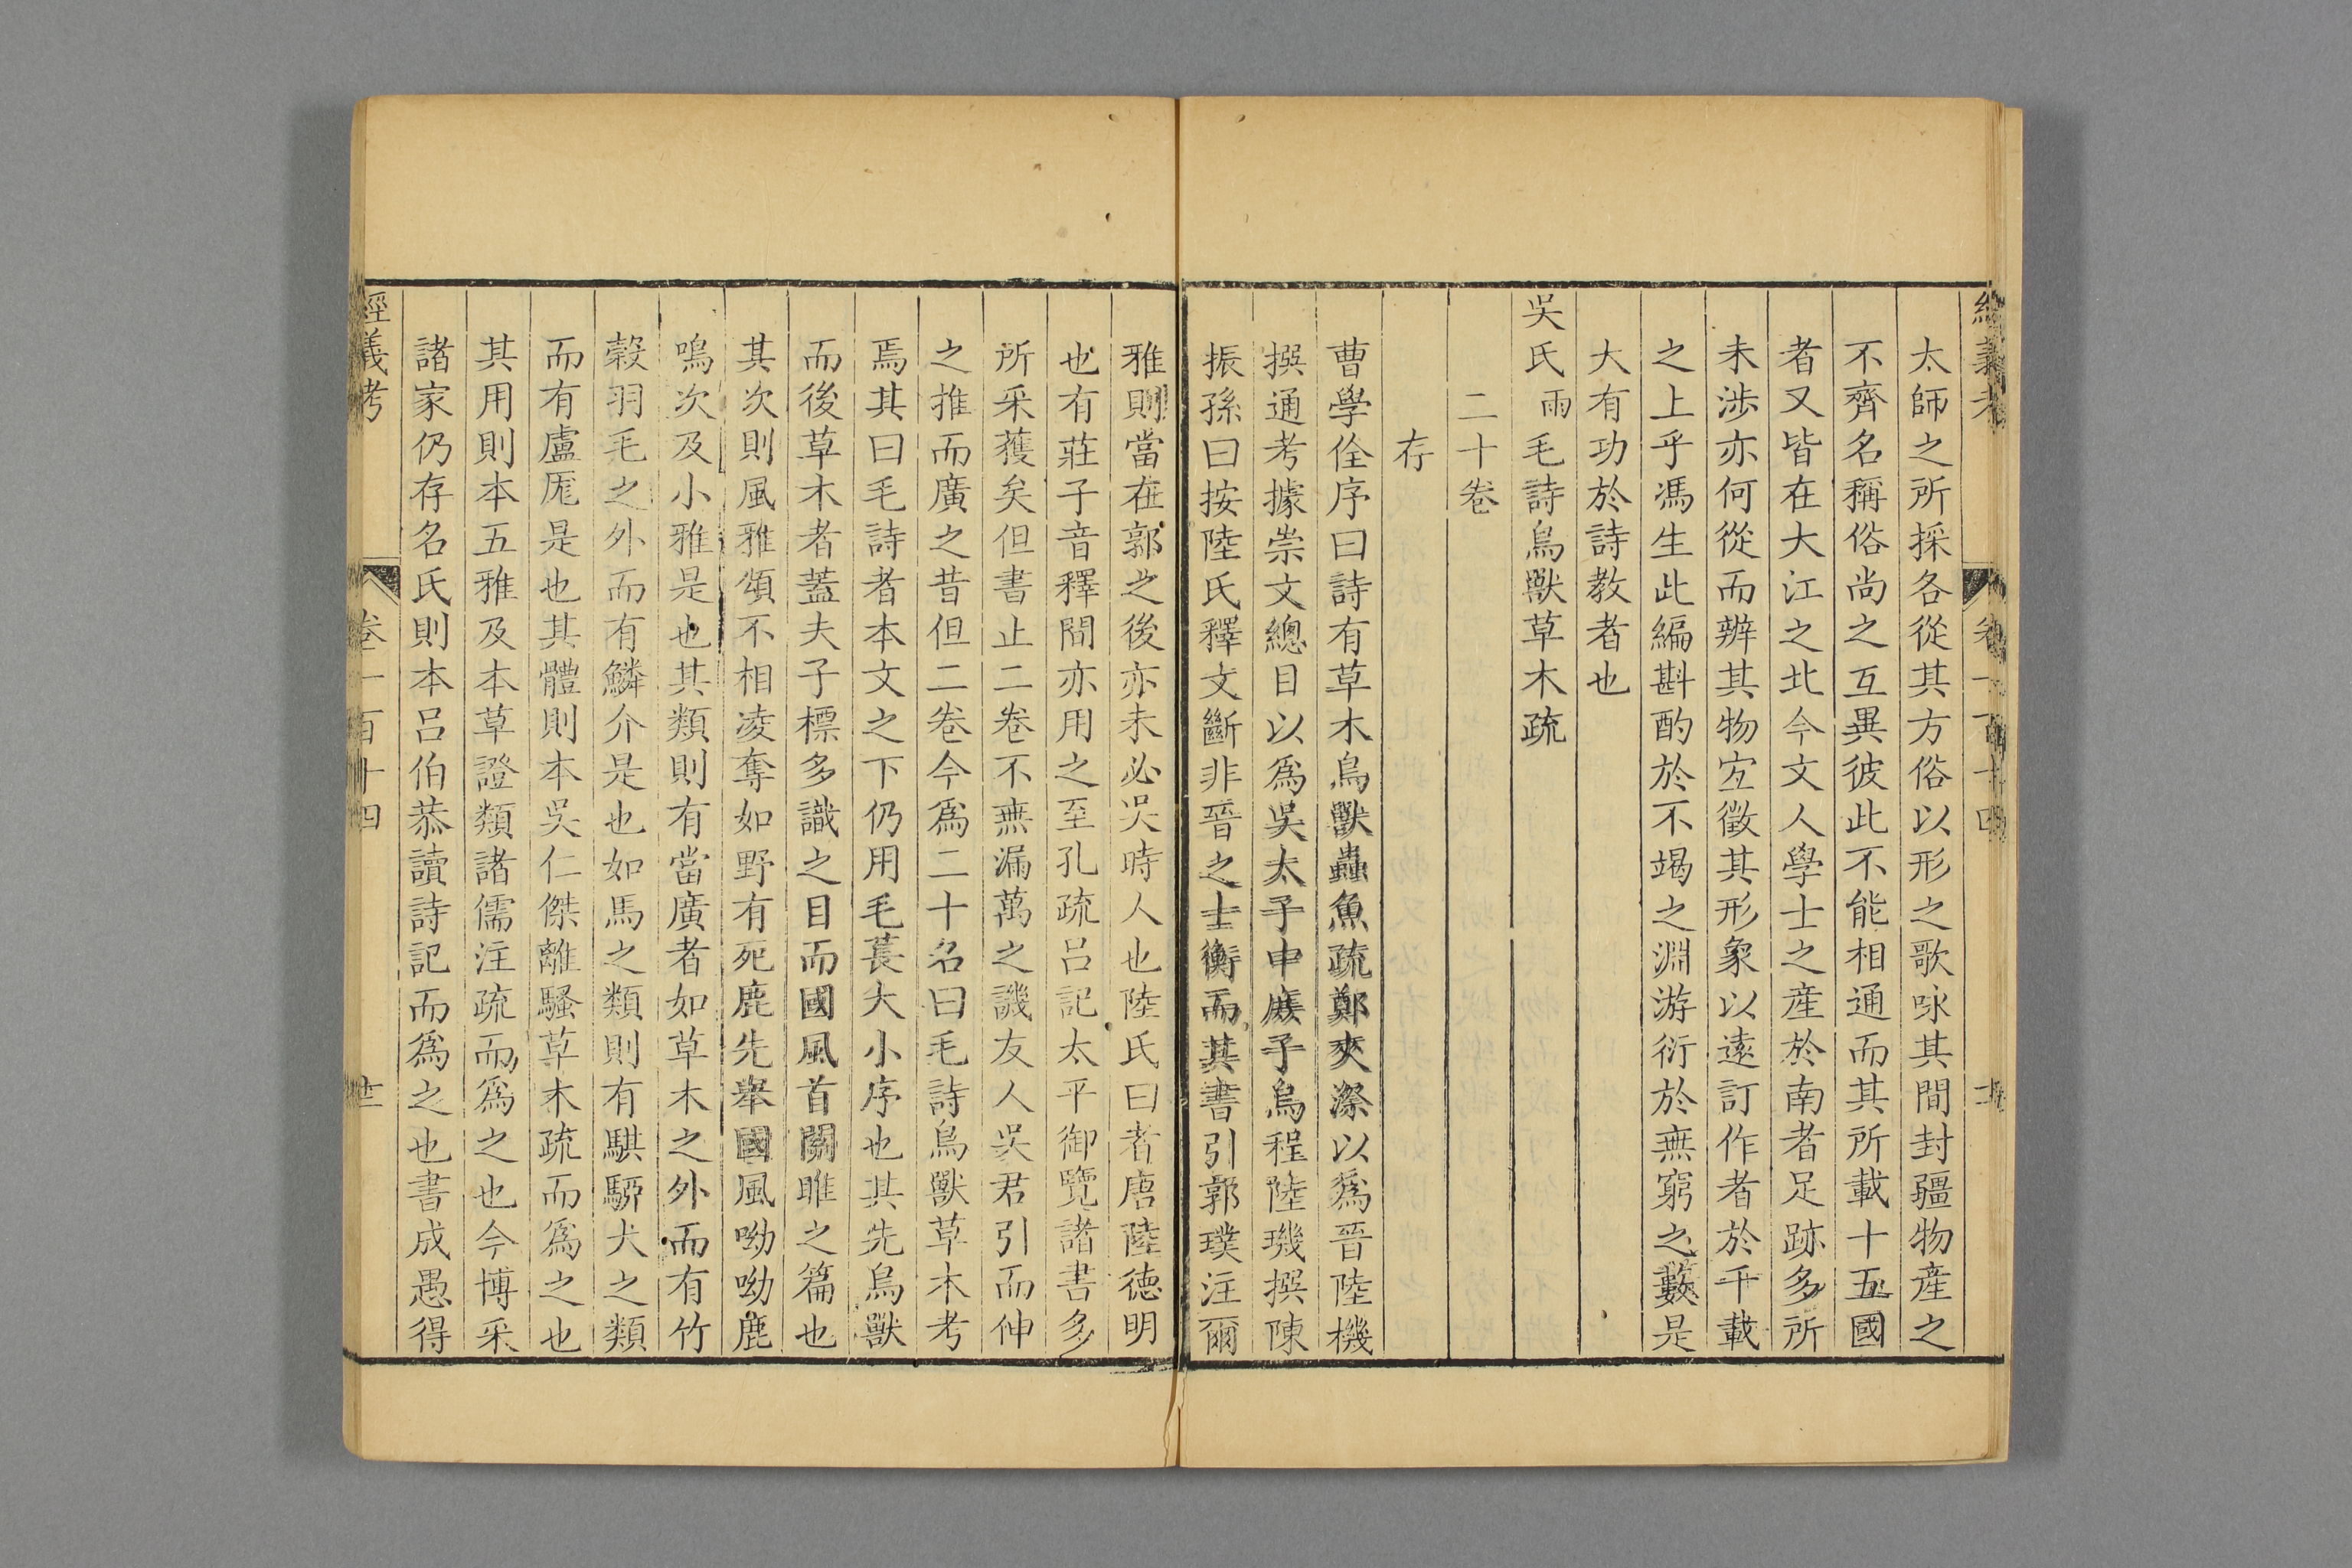 經義考 卷一百十四
太師之所採各從其方俗以形之歌咏其間封疆物産之
不齊名稱俗尚之互異彼此不能相通而其所載十五國
者又皆在大江之北今文人學士之産於南者足跡多所
未涉亦何從而辨其物宐徵其形象以遠訂作者於千載
之上乎馮生此編斟酌於不竭之淵游衍於無窮之藪是
大有功於詩教者也
吳氏雨毛詩鳥獸草木疏
二十卷
存
曹學佺序曰詩有草木鳥獸蟲魚疏鄭夾漈以爲晉陸機
撰通考據崇文總目以爲吳太子中庶子烏程陸璣撰陳
振孫曰按陸氏釋文斷非晉之士衡而其書引郭璞注爾
雅則當在郭之後亦未必吳時人也陸氏曰者唐陸德明
也有莊子音釋間亦用之至孔疏呂記太平御覽諸書多
所采獲矣但書止二卷不無漏萬之譏友人吳君引而伸
之推而廣之昔但二卷今爲二十名曰毛詩鳥獸草木考
焉其曰毛詩者本文之下仍用毛萇大小序也其先鳥獸
而後草木者蓋夫子標多識之目而國風首關雎之篇也
其次則風雅頌不相凌奪如野有死鹿先舉國風呦呦鹿
鳴次及小雅是也其類則有當廣者如草木之外而有竹
穀羽毛之外而有鱗介是也如馬之類則有騏馵犬之類
而有盧厖是也其體則本吳仁傑離騷草木疏而爲之也
其用則本五雅及本草證類諸儒注疏而爲之也今博采
諸家仍存名氏則本呂伯恭讀詩記而爲之也書成愚得
經義考 卷一百十四